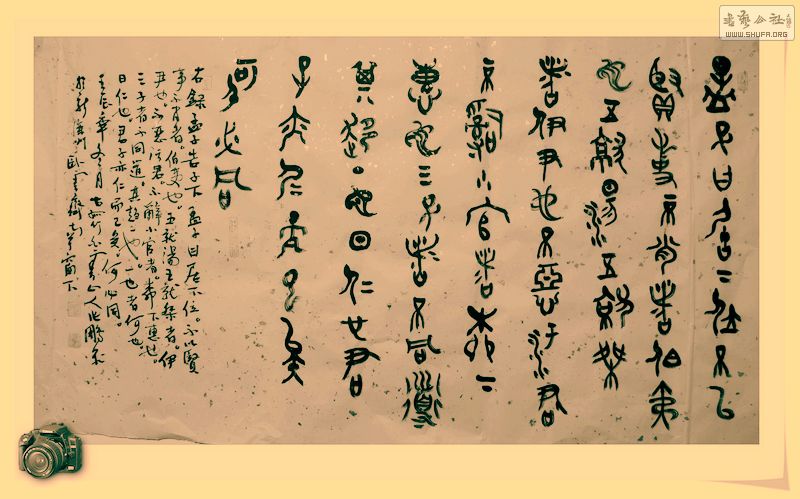 孟子曰居下位不以
賢事不肖者伯夷
也五就湯五就桀
者伊尹也不惡汙君
不辭小官者柳下
惠也三子者不同道
其趨一也曰仁也君
子亦仁而已矣
何必同
右錄孟子告子下孟子曰居下位不以賢
事不肖者。伯夷也。五就湯五就桀者。伊
尹也。不惡污君。不辭小官者。柳下惠也。
三子者不同道。其趨一也。一也者何也。
曰仁也。君子亦仁而已矣。何必同。
壬辰年冬月
臥雲齋南窗下
書藝公社
WWW.SHUFA.ORG